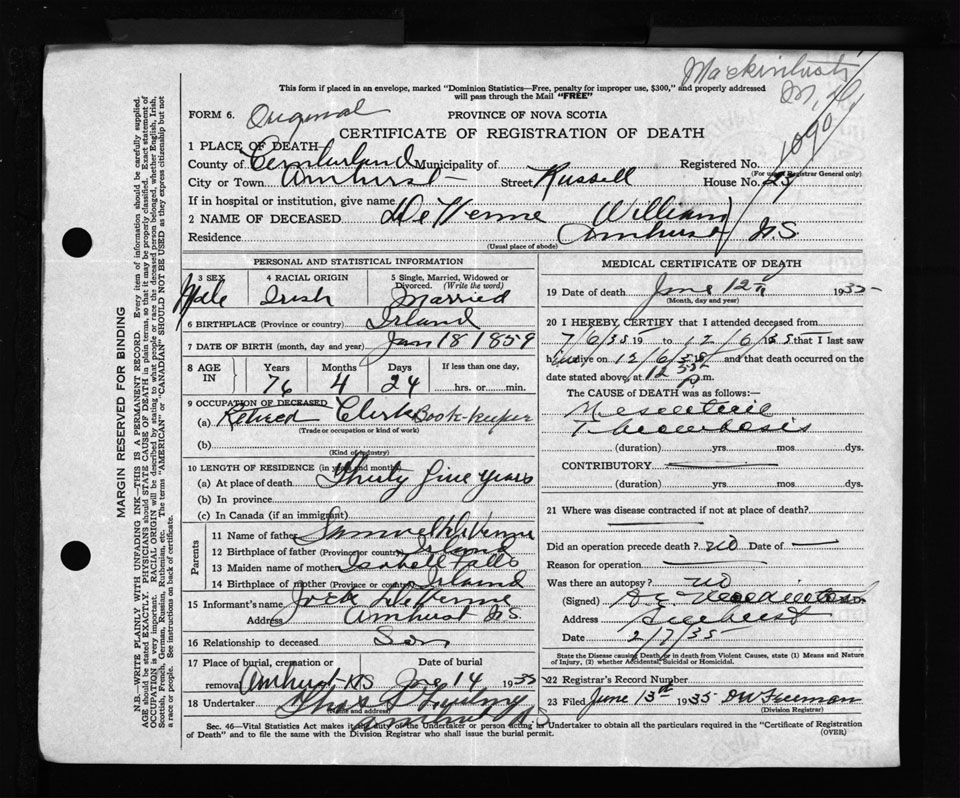 Mackintosh
M.D.
This form if placed in an envelope, marked "Dominion Statistics—Free, penalty for improper use, $300," and properly addressed
will pass through the Mail "FREE"
FORM 6. Original PROVINCE OF NOVA SCOTIA
CERTIFICATE OF REGISTRATION OF DEATH
1 PLACE OF DEATH
County of Cumberland Municipality of Registered No. 1090
(For use of Registrar General only)
City or Town Amherst Street Russell House No. 23
If in hospital or institution, give name
2 NAME OF DECEASED DeVenne William
Residence Amherst N.S.
(Usual place of abode)
PERSONAL AND STATISTICAL INFORMATION
3 SEX 4 RACIAL ORIGIN 5 Single, Married, Widowed or
Divorced. (Write the word)
Male Irish Married
6 BIRTHPLACE (Province or country) Irland
7 DATE OF BIRTH (month, day and year) Jan 18 1859
8 AGE IN Years Months Days If less than one day,
76 4 24 hrs. or min.
9 OCCUPATION OF DECEASED
(a) Retired Clerk Book-keeper
(Trade or occupation or kind of work)
(b)
(Kind of industry)
10 LENGTH OF RESIDENCE (in years and months)
(a) At place of death Thirty five years
(b) In province
(c) In Canada (if an immigrant)
Parents
11 Name of father Samuel DeVenne
12 Birthplace of father (Province or country) Irland
13 Maiden name of mother Isabell Falls
14 Birthplace of mother (Province or country) Irland
15 Informant's name Jock DeVenne
Address Amhurst N.S.
16 Relationship to deceased Son
17 Place of burial, cremation or Date of burial
removal Amhurst NS June 14 1935
18 Undertaker Chas
(Name and address)
Amhurst NS
MEDICAL CERTIFICATE OF DEATH
19 Date of death June 12th 1935
(Month, day and year)
20 I HEREBY CERTIFY that I attended deceased from
7/6/35 19 to 12/6/35 that I last saw
him alive on 12/6/35 and that death occurred on the
date stated above, at 12 P.m.
The CAUSE OF DEATH was as follows:—
Mesenteric
Thrombosis
(duration) yrs. mos. dys.
CONTRIBUTORY
(duration) yrs. mos. dys.
21 Where was disease contracted if not at place of death?
Did an operation precede death? NO Date of —
Reason for operation —
Was there an autopsy? NO
(Signed) M.D.
Address Amherst
Date 2/7/35
State the Disease causing Death, or in death from Violent Causes, state (1) Means and Nature
of Injury, (2) whether Accidental, Suicidal or Homicidal.
22 Registrar's Record Number
23 Filed June 13th 1935 DW Freeman
(Division Registrar)
Sec. 46—Vital Statistics Act makes it the duty of the Undertaker or person acting as Undertaker to obtain all the particulars required in the "Certificate of Registration
of Death" and to file the same with the Division Registrar who shall issue the burial permit. (OVER)
MARGIN RESERVED FOR BINDING
N.B.—WRITE PLAINLY WITH UNFADING INK—THIS IS A PERMANENT RECORD. Every item of information should be carefully supplied.
AGE should be stated EXACTLY. PHYSICIANS should STATE CAUSE OF DEATH in plain terms, so that it may be properly classified. Exact statement of
OCCUPATION is very important. RACIAL ORIGIN will be described by stating to what people or race the deceased person belonged, whether English, Irish,
Scottish, French, German, Russian, Ruthenian, etc. The terms "AMERICAN" or "CANADIAN" SHOULD NOT BE USED as they express citizenship but not
a race or people. See instructions on back of certificate.